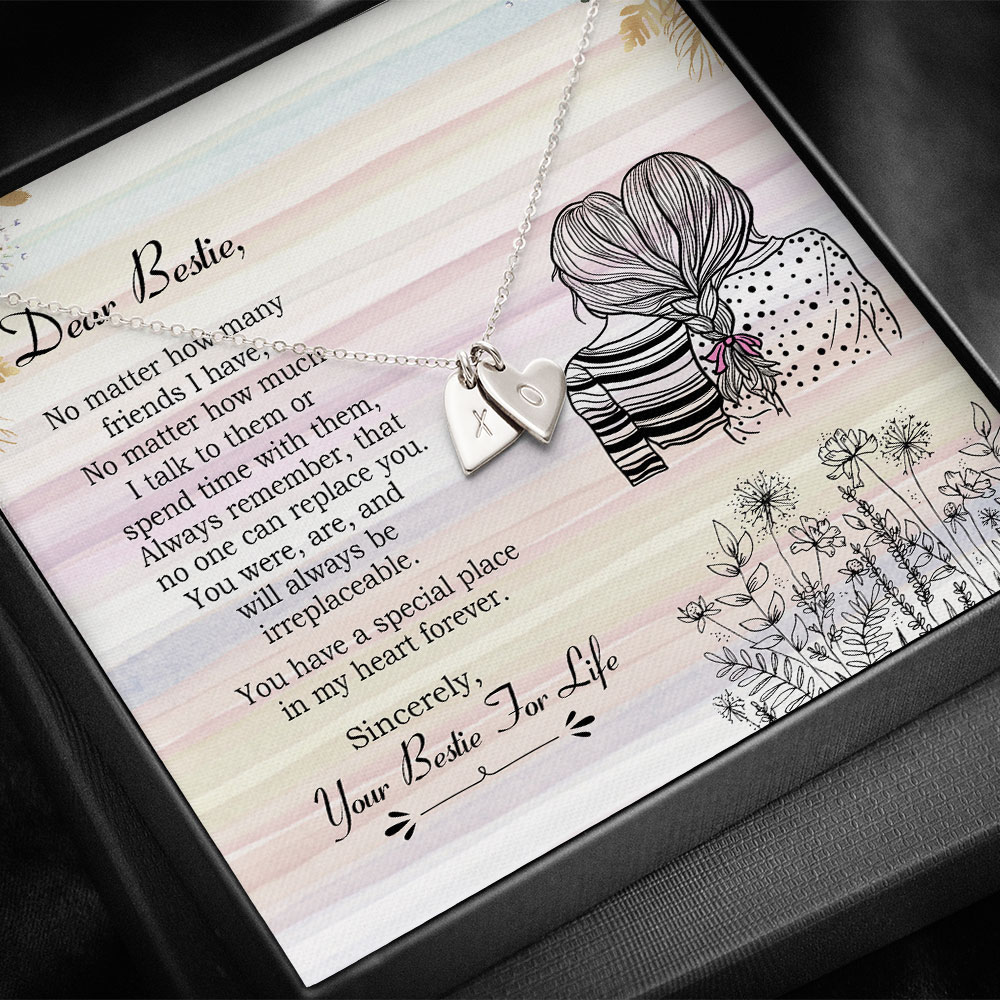 Dear Bestie,
No matter how many
friends I have,
No matter how much
I talk to them or
spend time with them,
Always remember, that
no one can replace you.
You were, are, and
will always be
irreplaceable.
You have a special place
in my heart forever.
Sincerely,
Your Bestie For Life
X
O